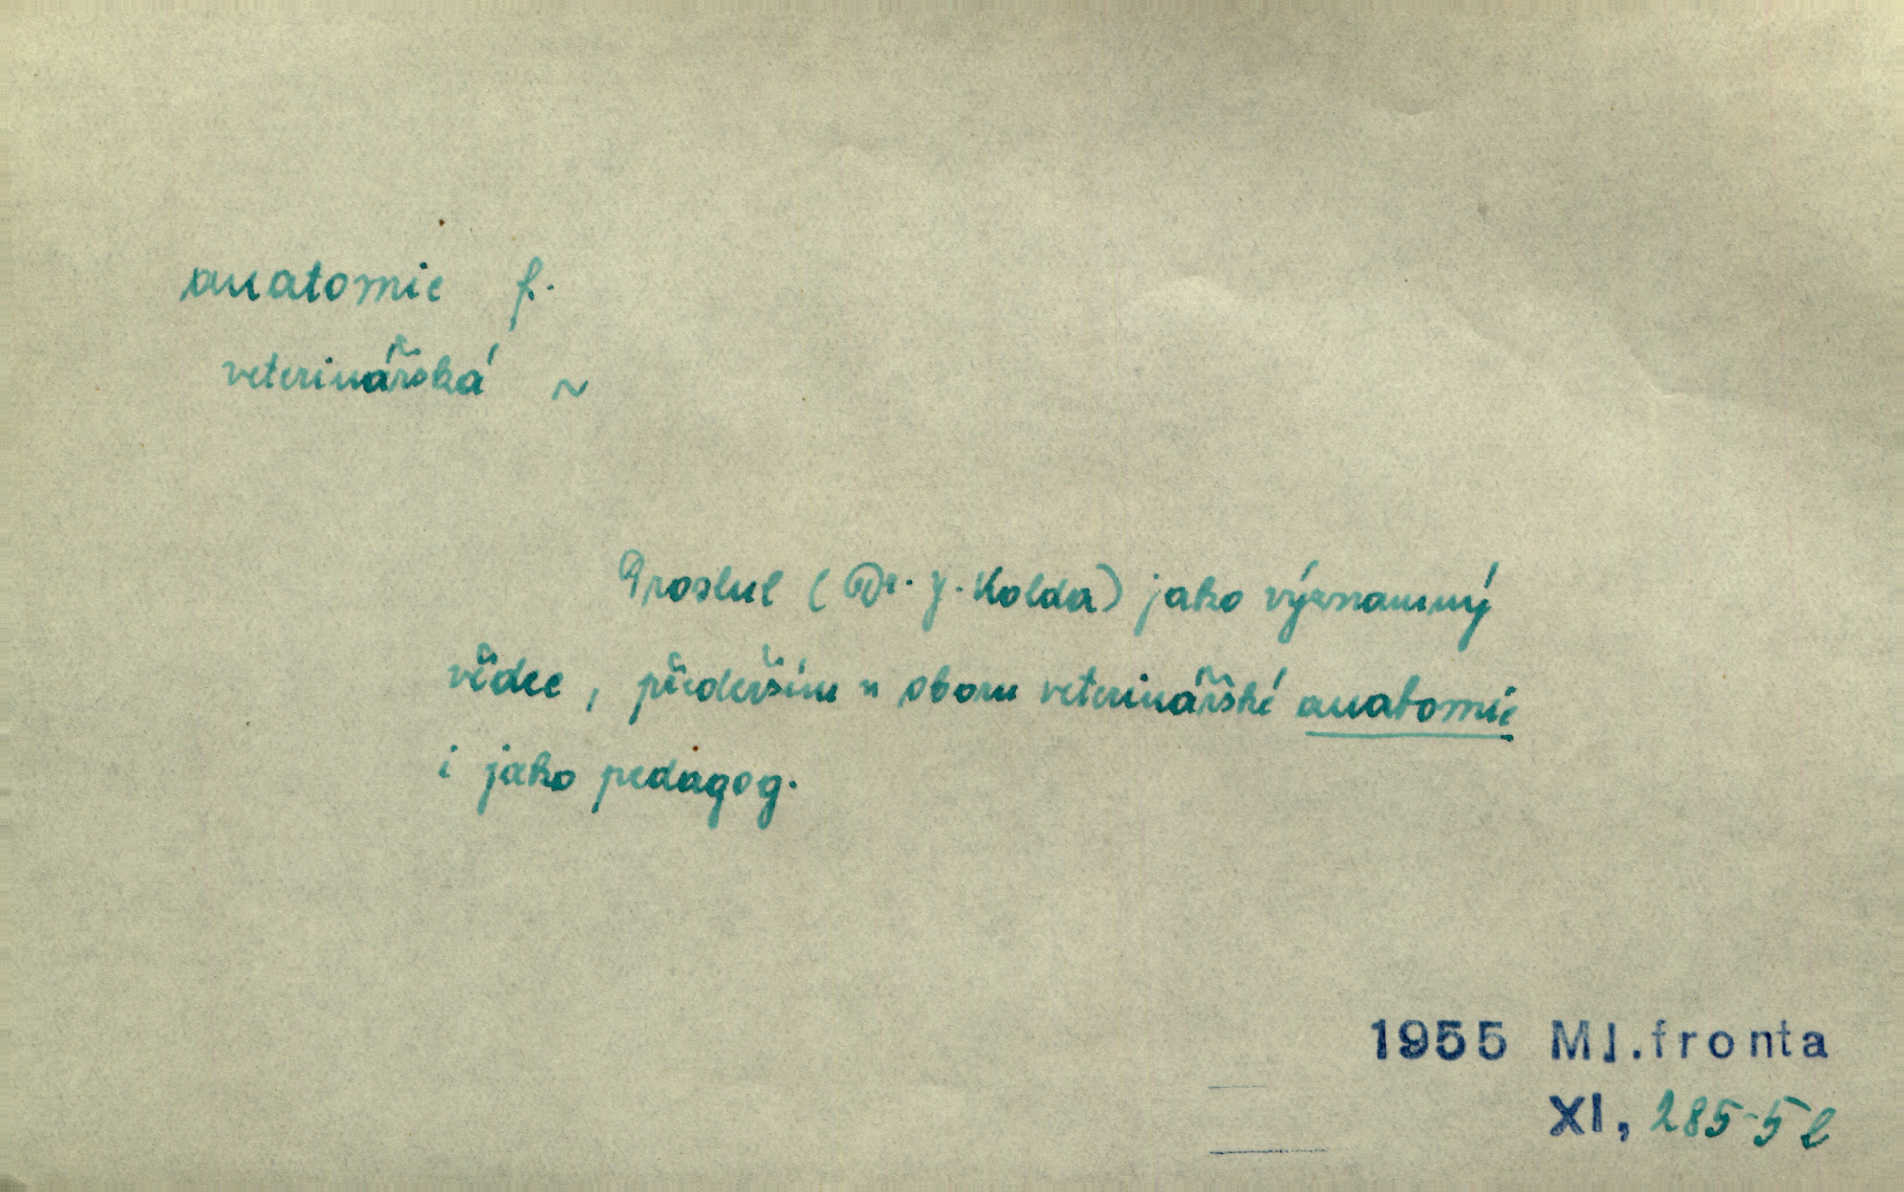 anatomie f.
veterinářská ~
Proslul (Dr. J. Kolda) jako významný
vědec, především v oboru veterinářské anatomie
i jako pedagog.
1955 Ml.fronta
XI, 285-5